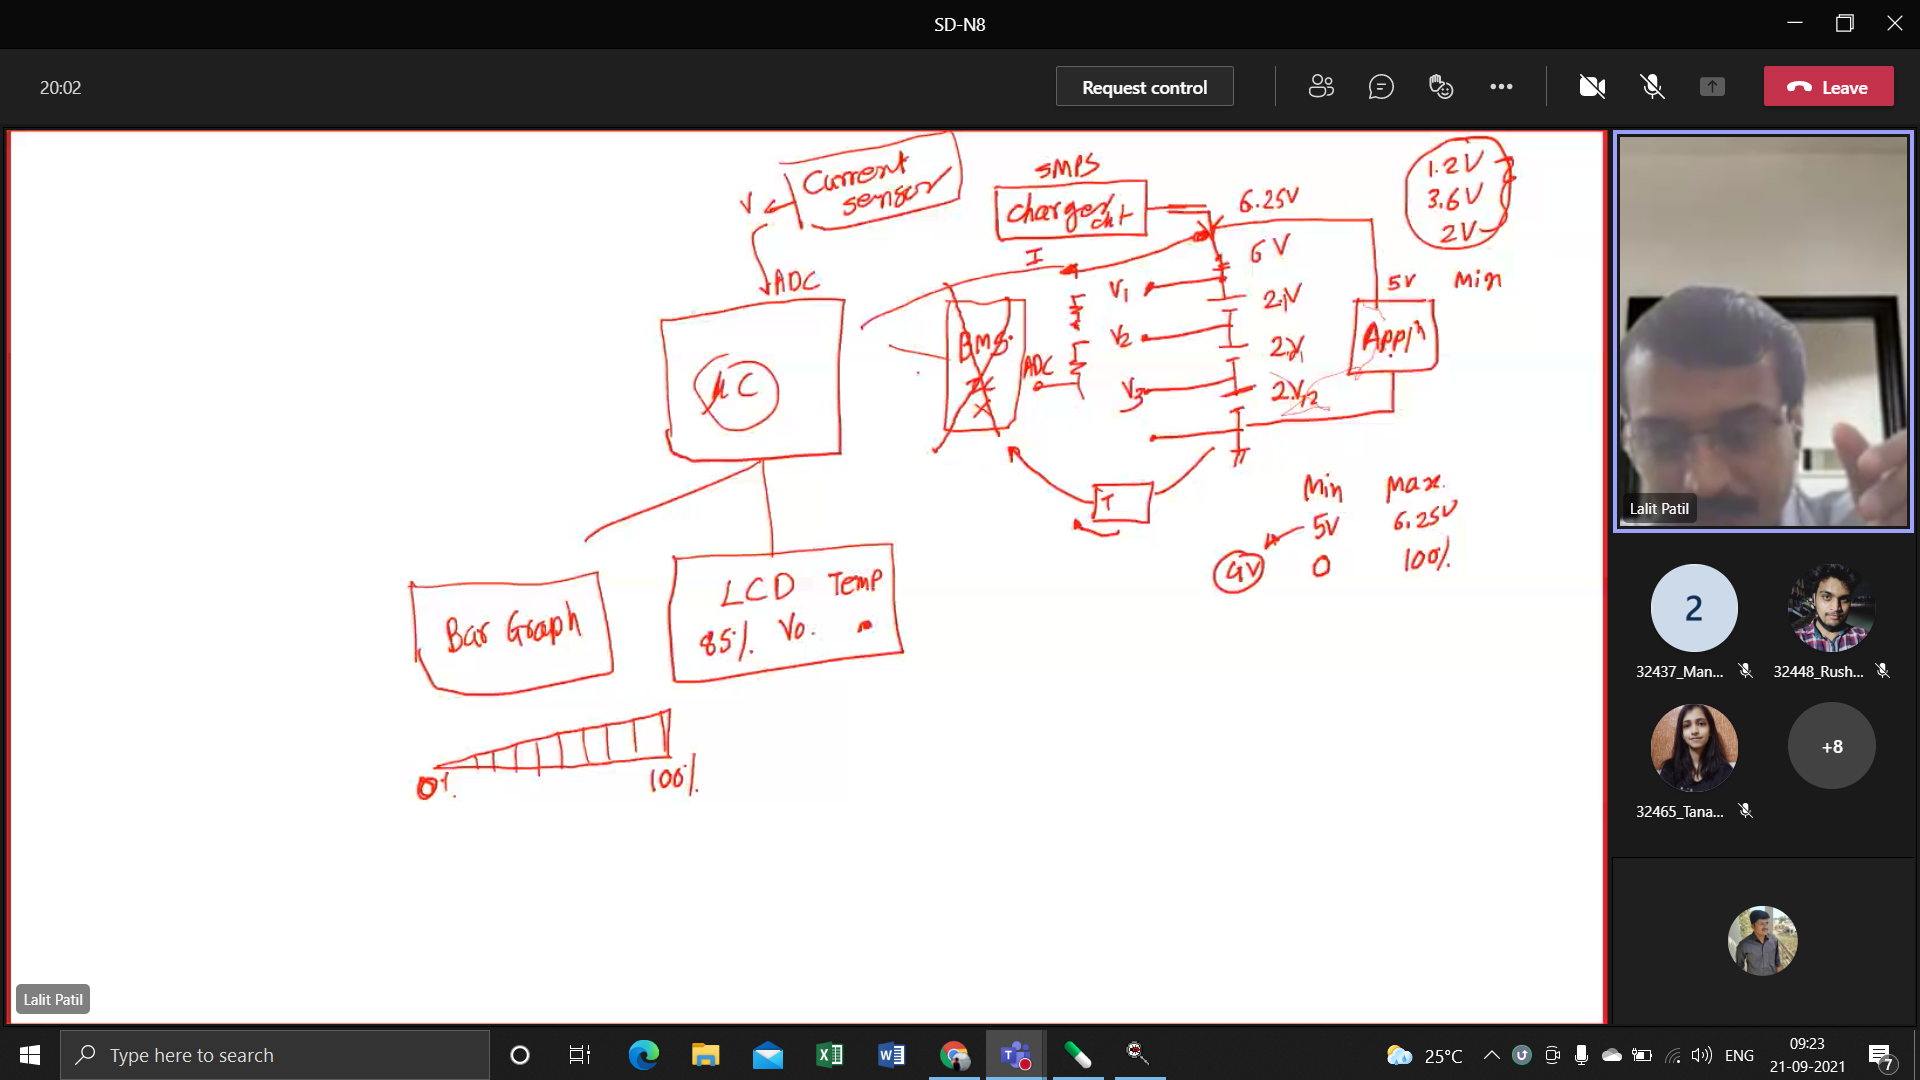 SD-N8
20:02
Request control
Leave
Current
sensor
V
ADC
SMPS
Charger/
ckt
6.25V
1.2V
3.6V
2V
I
6V
5V
Min
V1
2V
V2
2V
V3
BMS
IC
X
ADC
App/n
μC
T
Min
Max.
5V
6.25V
4V
0
100%
Bar Graph
LCD
Temp
85%
Vo.
0%
100%
Lalit Patil
Lalit Patil
2
32437_Man...
32448_Rush...
32465_Tana...
+8
Type here to search
25°C
ENG
09:23
21-09-2021
7